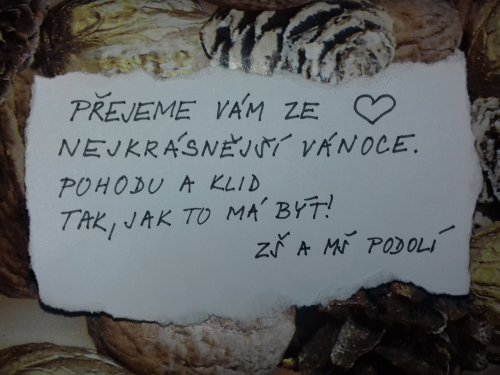 PŘEJEME VÁM ZE ♡
NEJKRÁSNĚJŠÍ VÁNOCE.
POHODU A KLID
TAK, JAK TO MÁ BÝT!
ZŠ A MŠ PODOLÍ